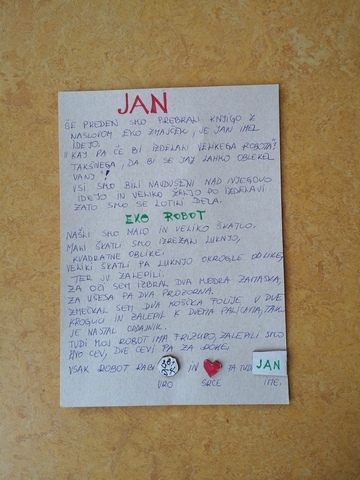 JAN
ŠE PREDEN SMO PREBRALI KNJIGO Z
NASLOVOM EKO ZMAJČEK, JE JAN IMEL
IDEJO.
"KAJ PA ČE BI IZDELALI VELIKEGA ROBOTA?
TAKŠNEGA, DA BI SE JAZ LAHKO OBLEKEL
VANJ"!
VSI SMO BILI NAVDUŠENI NAD NJEGOVO
IDEJO IN VELIKO ŽELJO PO IZDELAVI
ZATO SMO SE LOTILI DELA.
EKO ROBOT
NAŠLI SMO MALO IN VELIKO ŠKATLO,
MALI ŠKATLI SMO IZREZALI LUKNJO,
KVADRATNE OBLIKE,
VELIKI ŠKATLI PA LUKNJO OKROGLE OBLIKE,
TER JU ZALEPILI.
ZA OČI SEM IZBRAL DVA MODRA ZAMAŠKA,
ZA UŠESA PA DVA PROZORNA.
ZMEČKAL SEM DVA KOŠČKA FOLIJE V DVE
KROGLICI IN ZALEPIL K DVEMA PALICAMA, TAKO
JE NASTAL ODDAJNIK.
TUDI MOJ ROBOT IMA FRIZURO, ZALEPILI SMO
MU CEVI, DVE CEVI PA ZA ROKE.
VSAK ROBOT RABI IN TA TUDI JAN
URO SRCE IME.